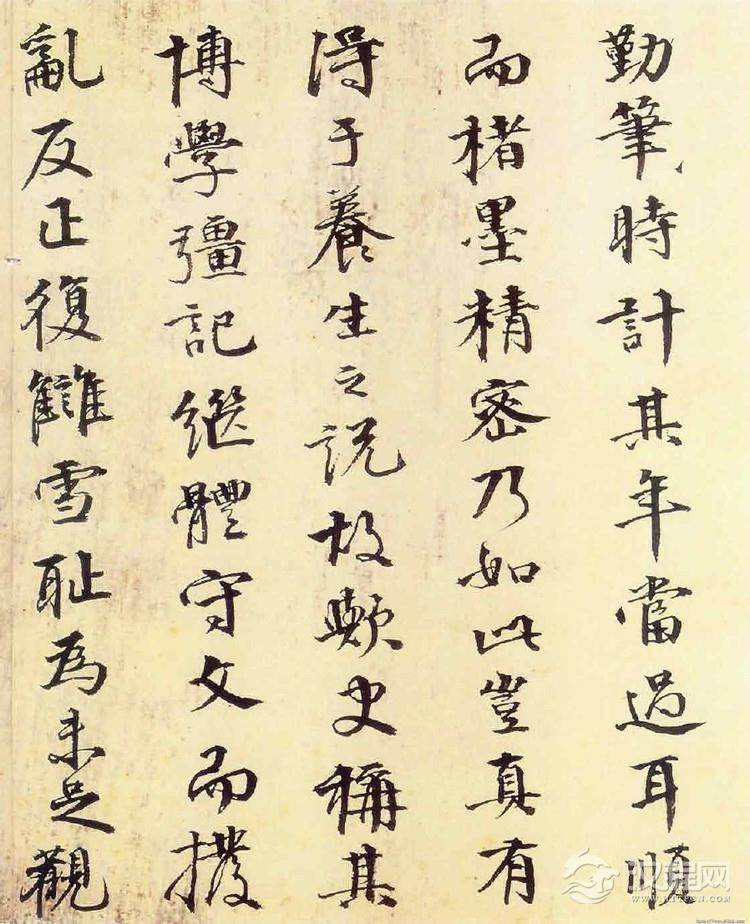 勤筆時計其年當過耳順
而楮墨精密乃如此豈真有
得于養生之說故歟史稱其
博學彊記繼體守文而撥
亂反正復讎雪耻為未足觀
汉程网
HTTPCN.COM